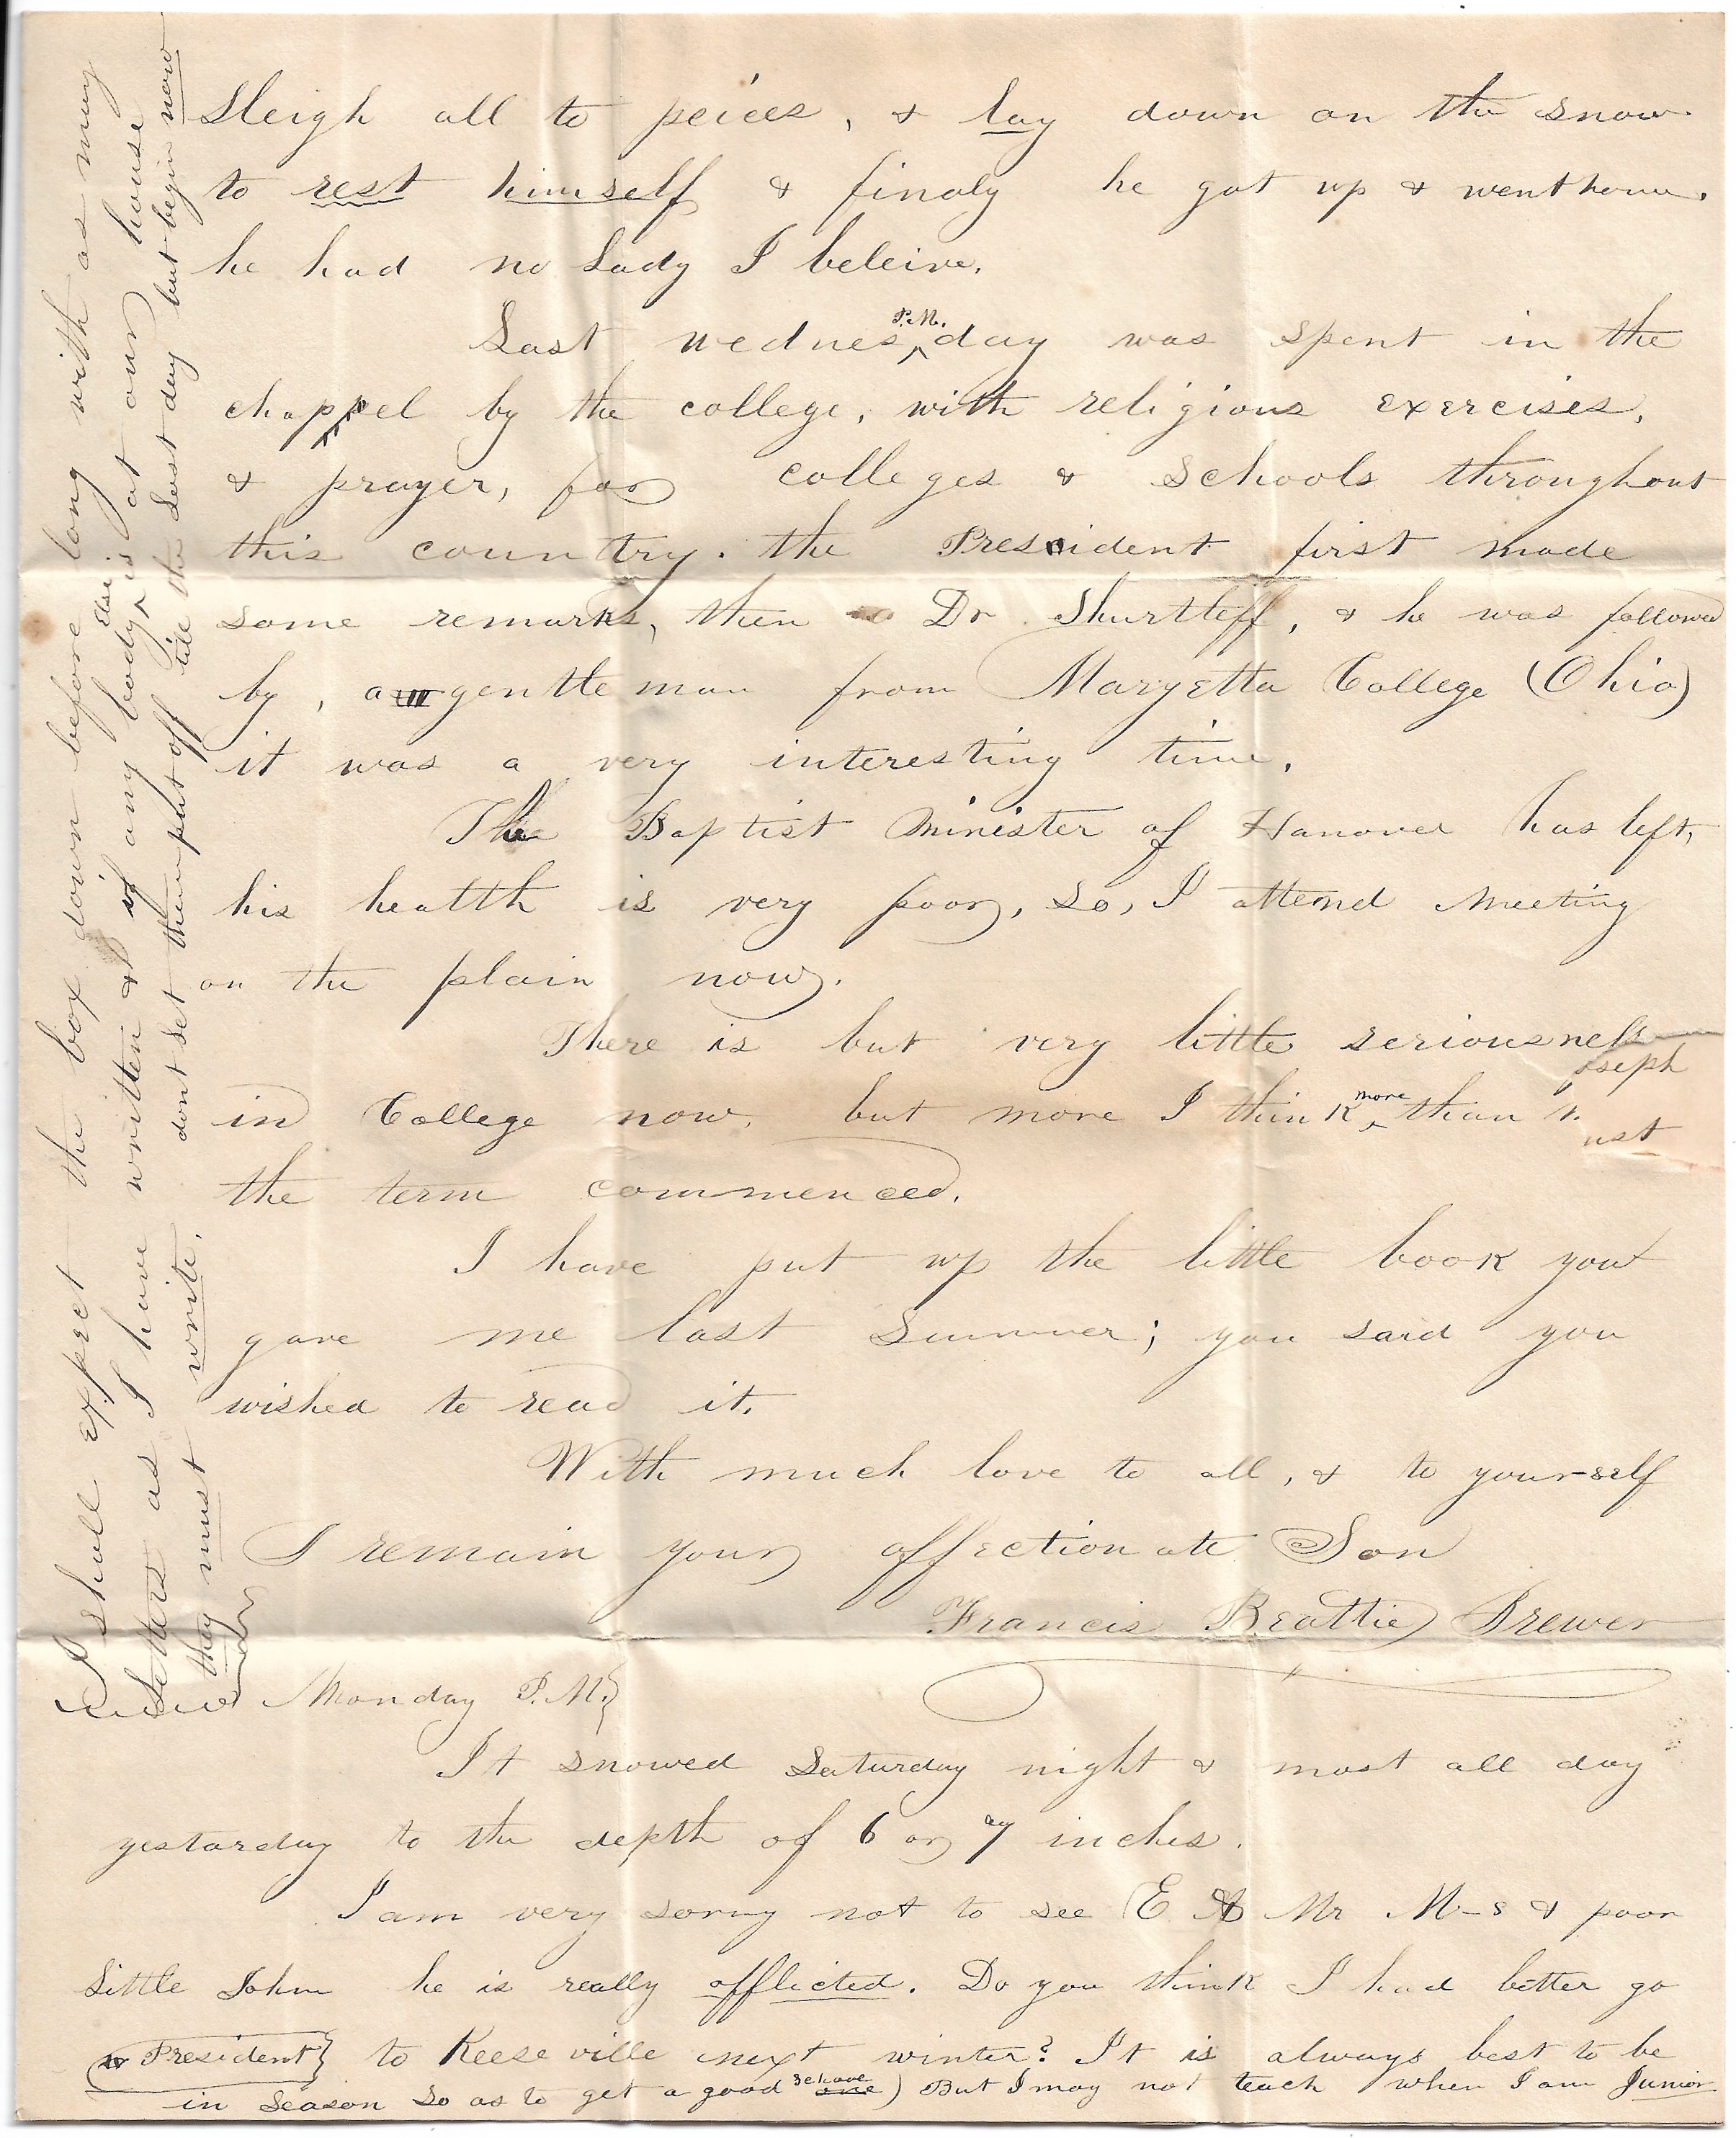 Sleigh all to peices, & lay down on the snow
to rest himself & finaly he got up & went home.
he had no Lady I beleive.
Last wednes P.M. day was spent in the
chappel by the college, with religious exercises,
& prayer, for colleges & Schools throughout
this country. the President first made
some remarks, then Dr. Shurtleff, & he was followed
by, a gentleman from Maryetta College (Ohio)
it was a very interesting time.
The Baptist Minister of Hanover has left,
his health is very poor, so, I attend Meeting
on the plain now.
There is but very little seriousness
seph
in College now, but more I think more than
ust
the term commenced.
I have put up the little book you
gave me last Summer; you said you
wished to read it.
With much love to all, & to yourself
I remain your affectionate Son
Francis Beattie Brewer
Monday P.M.
It snowed Saturday night & most all day
yestarday to the depth of 6 or 7 inches.
I am very sorry not to see E & Mr M-s & poor
Little John he is really afflicted. Do you think I had better go
to Keeseville next winter? It is always best to be
President
in Season so as to get a good one) But I may not teach when I am Junior
I shall expect the box down before long with as many
Letters as I have written & if any body else is at our house
they must write. dont let them put off till the Last day but begin now